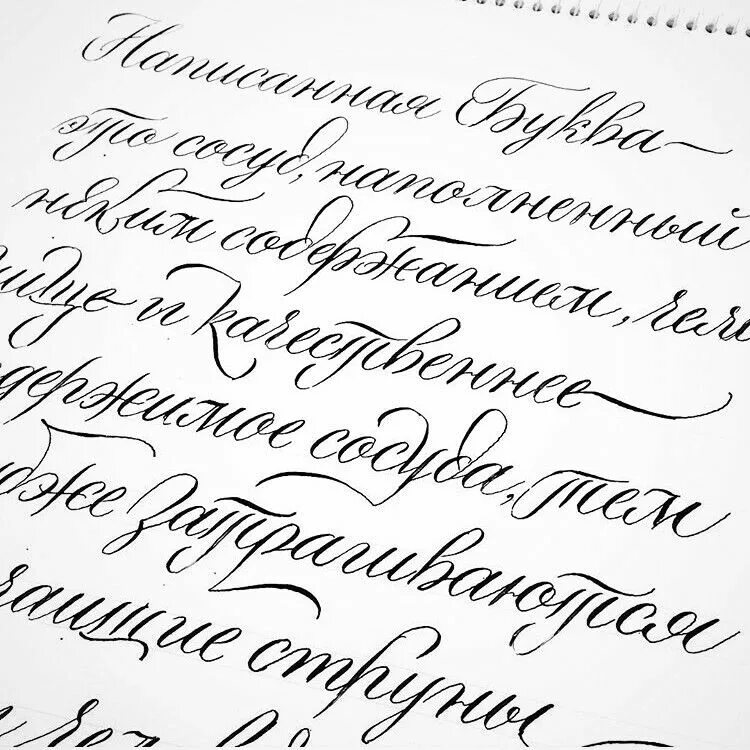 Написанная Буква-
это сосуд, наполненный
неким содержанием, чем
и качественнее
содержимое сосуда, тем
же затрагиваются
струны